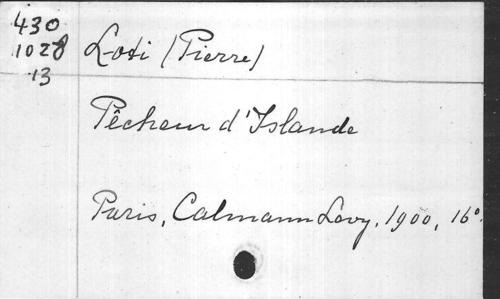 430
1028
13
Loti (Pierre)
Pêcheur d'Islande
Paris, Calmann Levy, 1900, 16º.